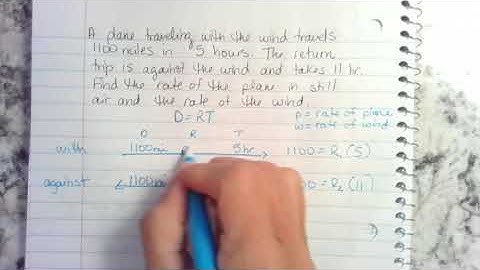 A plane traveling with the wind travels
1100 miles in 5 hours. The return
trip is against the wind and takes 11 hr.
Find the rate of the plane in still
air and the rate of the wind.
D=RT
p = rate of plane
w = rate of wind
D R T
with 1100mi 5hr 1100 = R₁(5)
against 1100 = R₂(11)